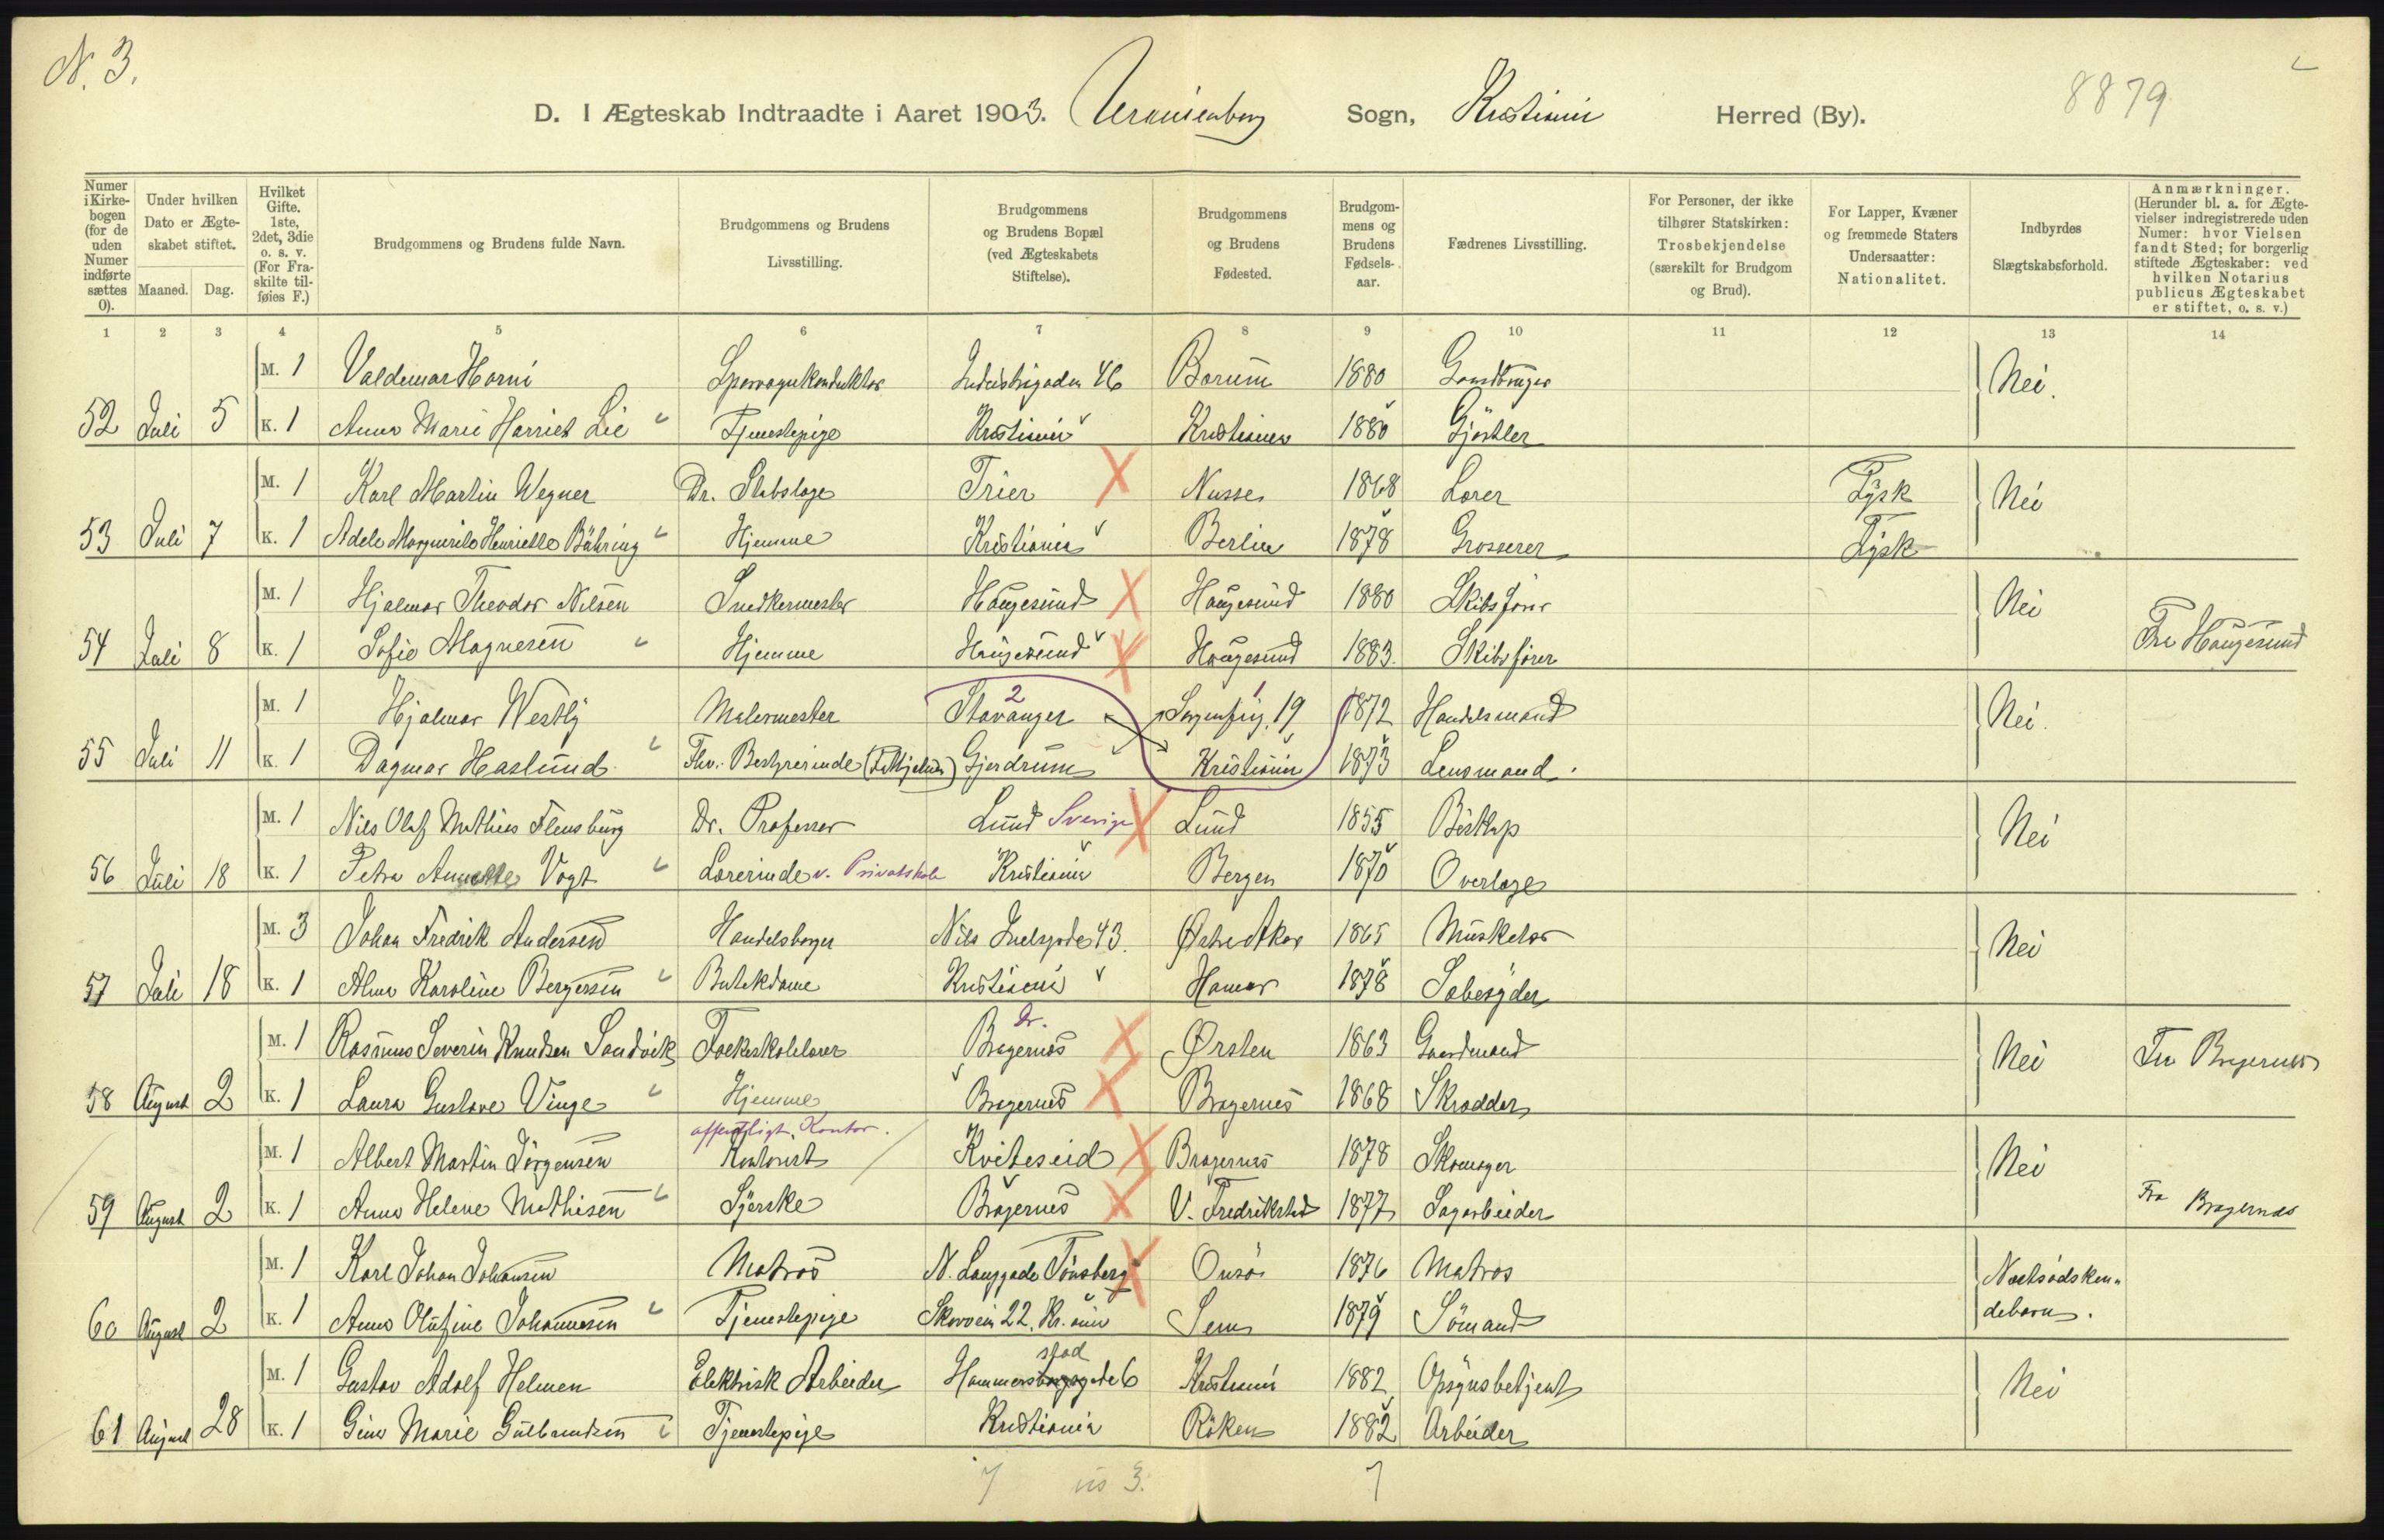 N. 3.
8879
D. I Ægteskab Indtraadte i Aaret 1903. Uranienborg Sogn, Kristiania Herred (By).
Numer i Kirkebogen (for de uden Numer indførte sættes 0).
Under hvilken Dato er Ægteskabet stiftet.
Maaned. Dag.
Hvilket Gifte. 1ste, 2det, 3die o. s. v. (For Fraskilte tilføies F.)
Brudgommens og Brudens fulde Navn.
Brudgommens og Brudens Livsstilling.
Brudgommens og Brudens Bopæl (ved Ægteskabets Stiftelse).
Brudgommens og Brudens Fødested.
Brudgommens og Brudens Fødselsaar.
Fædrenes Livsstilling.
For Personer, der ikke tilhører Statskirken: Trosbekjendelse (særskilt for Brudgom og Brud).
For Lapper, Kvæner og fremmede Staters Undersaatter: Nationalitet.
Indbyrdes Slægtskabsforhold.
Anmærkninger. (Herunder bl. a. for Ægtevielser indregistrerede uden Numer: hvor Vielsen fandt Sted; for borgerlig stiftede Ægteskaber: ved hvilken Notarius publicus Ægteskabet er stiftet, o. s. v.)
1 2 3 4 5 6 7 8 9 10 11 12 13 14
M. 1 Valdemar Horni Sporvognkonduktør Industrigaden 46 Bærum 1880 Gaardbruger Nei.
52 Juli 5 K. 1 Anna Marie Harriet Lie Tjenestepige Kristiania Kristiania 1880 Gjörtler
M. 1 Karl Martin Wegner Dr. Stabslæge Trier Nusse 1868 Lærer Tysk Nei
53 Juli 7 K. 1 Adele Marguerite Henriette Bühring Hjemme Kristiania Berlin 1878 Grosserer Tysk
M. 1 Hjalmar Theodor Nilsen Snedkermester Haugesund Haugesund 1880 Skibsfører Nei
54 Juli 8 K. 1 Sofie Magnesen Hjemme Haugesund Haugesund 1883. Skibsfører Fra Haugesund
M. 1 Hjalmar Westly Malermester Stavanger 2 Sorgenfrig. 19 1 1872 Handelsmand Nei.
55 Juli 11 K. 1 Dagmar Haslund Thv. Bestyrerinde Gjerdrum Kristiania 1873 Lensmand.
M. 1 Nils Olaf Mathias Flensburg Dr. Professor Lund Sverige Lund 1855 Biskop Nei
56 Juli 18 K. 1 Petra Annette Vogt Lærerinde v. Privatskole Kristiania Bergen 1870 Overlæge
M. 3 Johan Fredrik Andersen Handelsborger Nils Juelsgade 43. Østre Aker 1865 Musketør Nei
57 Juli 18 K. 1 Alma Karoline Bergersen Butikdame Kristiania Hamar 1878 Sæbesyder
M. 1 Rasmus Severin Knudsen Sandvik Folkeskolelærer Bragernæs Dr. Ørsten 1863 Gaardmand Nei Fra Bragernæs
58 August 2 K. 1 Laura Gustava Vinge Hjemme Bragernes Bragernes 1868 Skrædder
offentligt Kontor.
M. 1 Albert Martin Jörgensen Kontorist Kviteseid Bragernæs 1878 Skomager Nei
59 August 2 K. 1 Anna Helene Mathisen Syerske Bragernes V. Fredrikstad 1877 Sagarbeider Fra Bragernæs
M. 1 Karl Johan Johansen Matros N. Langgade Tönsberg Onsö 1876 Matros Næstsødskendebarn.
60 August 2 K. 1 Anna Olufine Johannesen Tjenestepige Skovvein 22. Kr.ania Sem 1879 Sömand
M. 1 Gustav Adolf Helmen Elektrisk Arbeider Hammerstadgade 6 Kristiania 1882 Opsynsbetjent Nei
61 August 28 K. 1 Gina Marie Gulbrandsen Tjenestepige Kristiania Röken 1882 Arbeider
7 3. 7